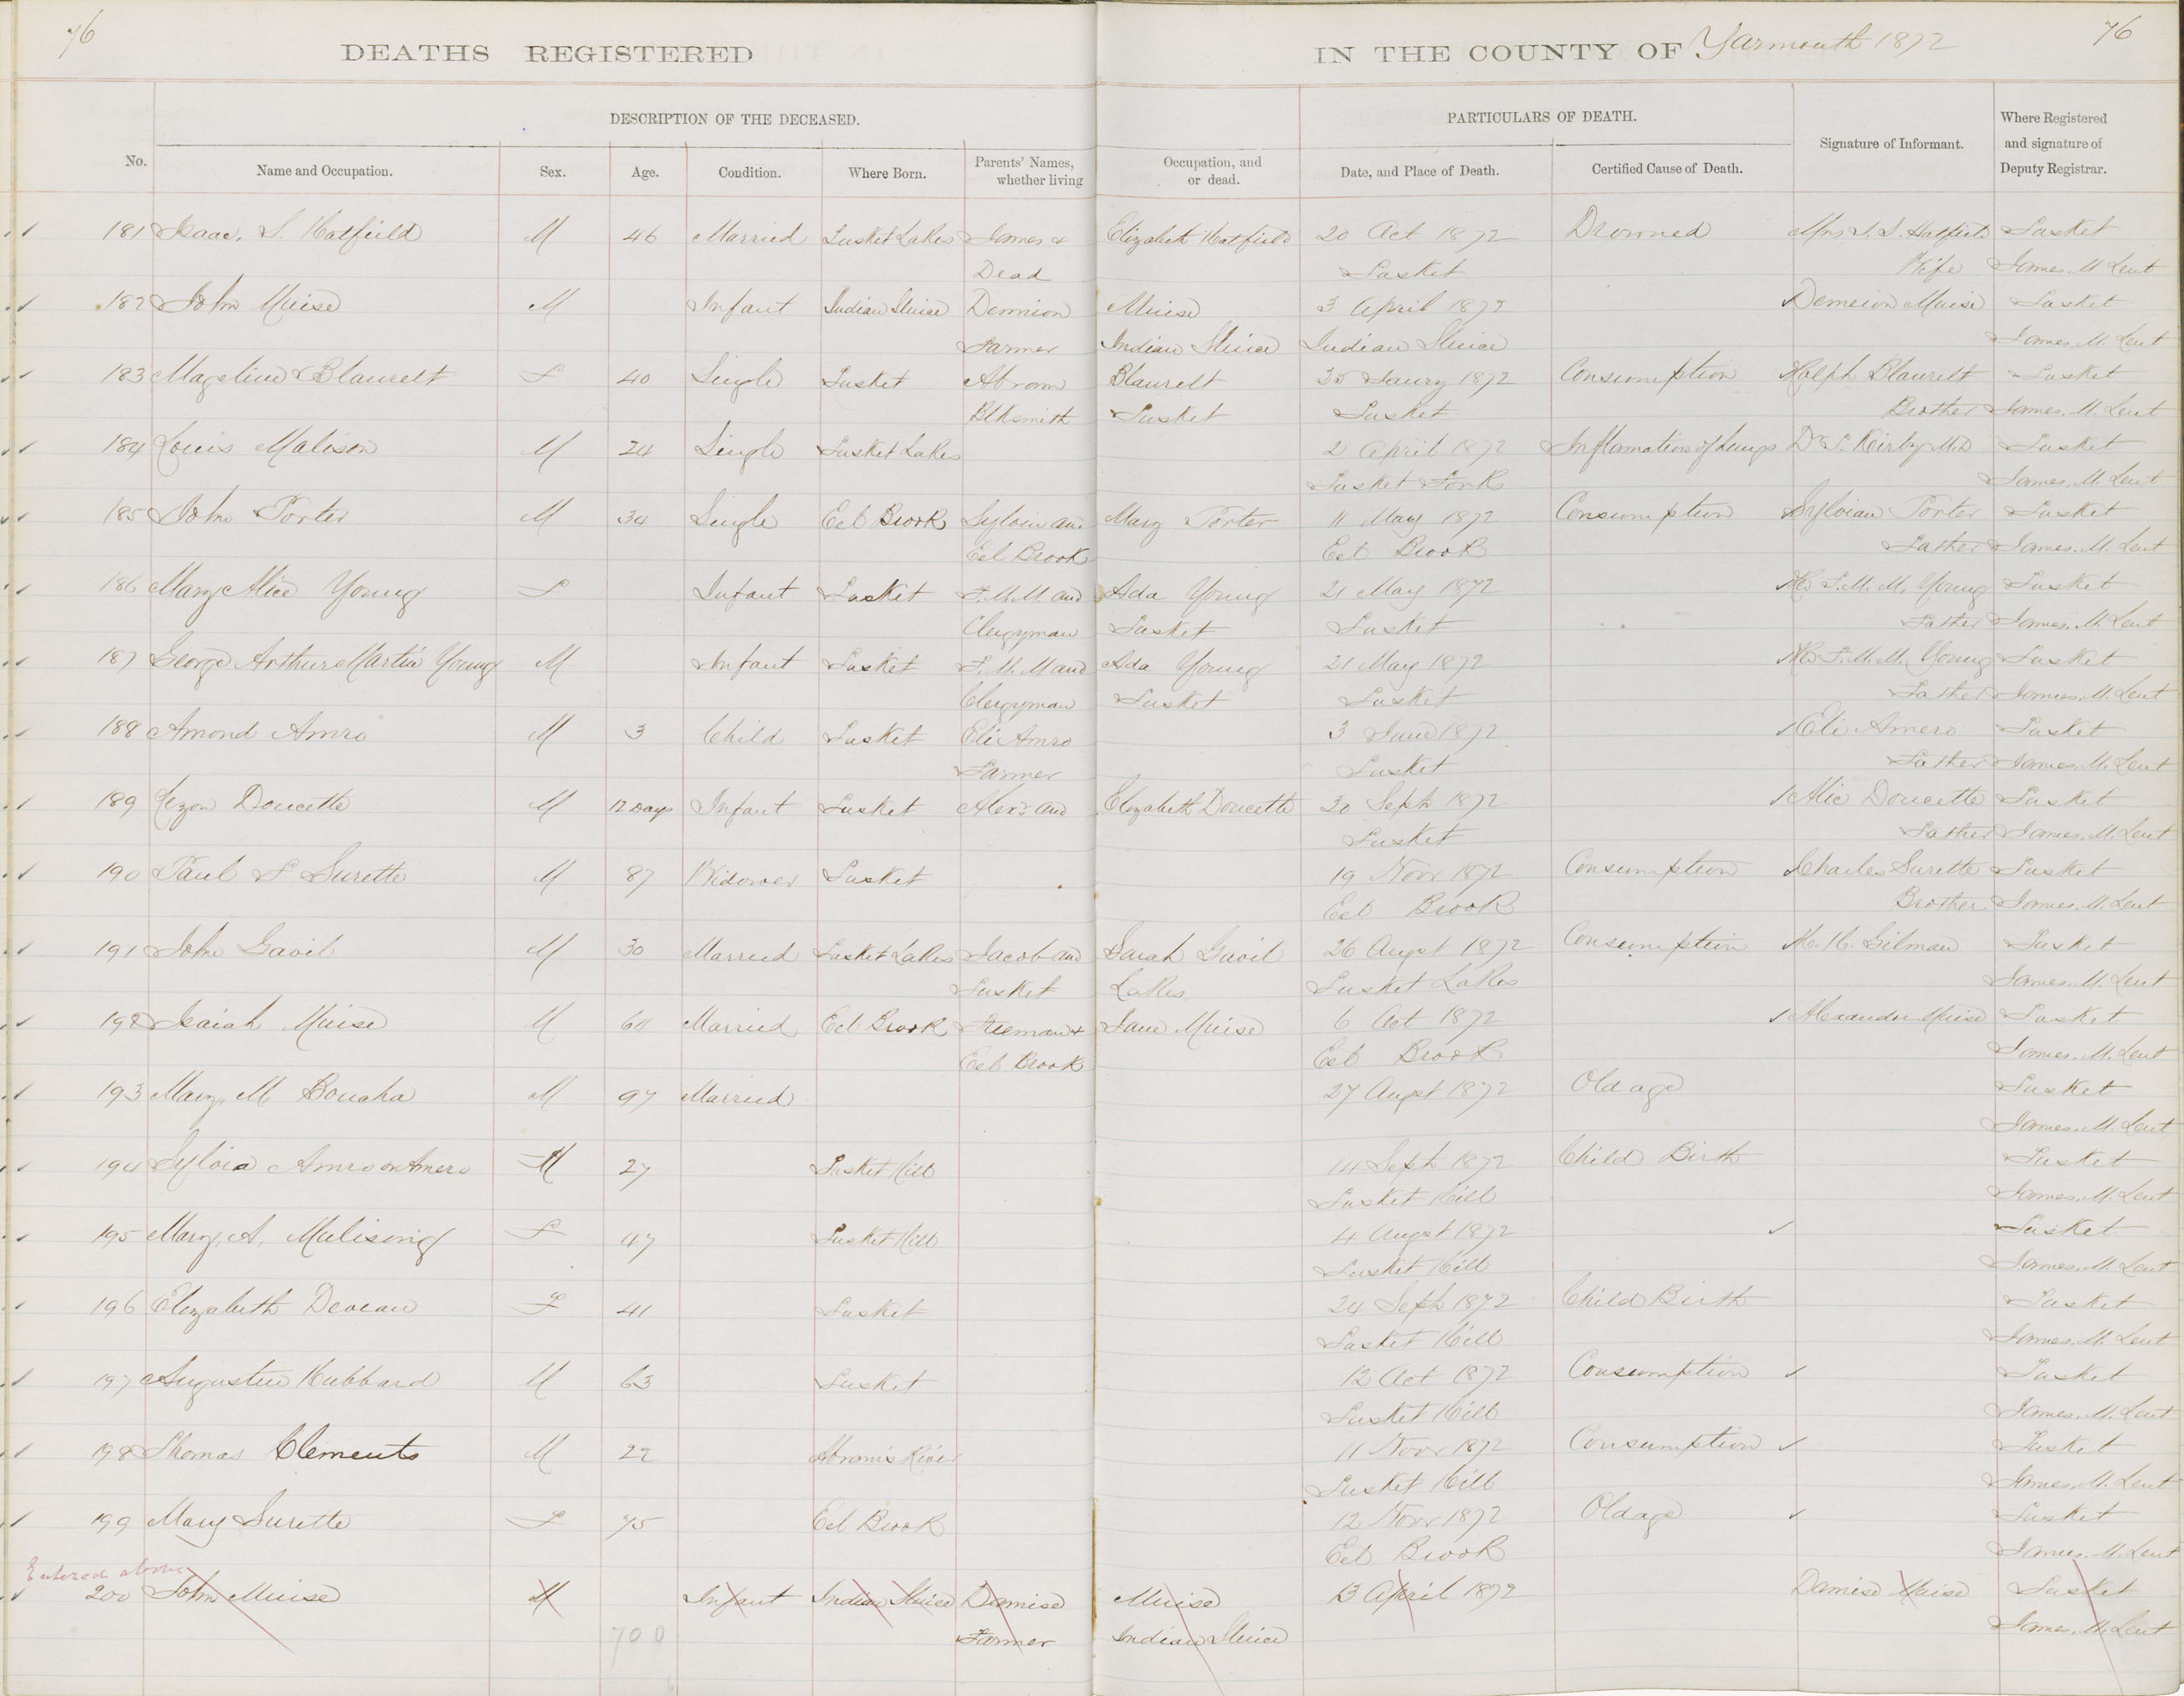 76
DEATHS REGISTERED
IN THE COUNTY OF Yarmouth 1872
76
DESCRIPTION OF THE DECEASED.
PARTICULARS OF DEATH.
No.
Name and Occupation.
Sex.
Age.
Condition.
Where Born.
Parents' Names, whether living
Occupation, and or dead.
Date, and Place of Death.
Certified Cause of Death.
Signature of Informant.
Where Registered and signature of Deputy Registrar.
181 Isaac. S. Hatfield M 46 Married Tusket Lakes James & Elizabeth Hatfield 20 Oct 1872 Drowned Mrs I. S. Hatfield Tusket
Dead Tusket Wife James. M. Lent
182 John Muise M Infant Indian Sluice Dennison Muise 3 April 1872 Demeion Muise Tusket
Farmer Indian Sluice Indian Sluice James. M. Lent
183 Mageline Blauvelt F 40 Single Tusket Abrom Blauvelt 25 Jaury 1872 Consumption Ralph Blauvelt Tusket
Blksmith Tusket Tusket Brother James. M. Lent
184 Louis Malison M 24 Single Tusket Lakes 2 April 1872 Inflamation of Lungs Dr. Kirby M.D Tusket
Tusket Fork James. M. Lent
185 John Porter M 34 Single Eel Brook Sylvin and Mary Porter 11 May 1872 Consumption Sylvian Porter Tusket
Eel Brook Eel Brook Father James. M. Lent
186 Mary Alice Young F Infant Tusket T. M. M. and Ada Young 21 May 1872 T. M. M. Young Tusket
Clergyman Tusket Tusket Father James. M. Lent
187 George Arthur Martin Young M Infant Tusket T. M. M and Ada Young 21 May 1872 T. M. M. Young Tusket
Clergyman Tusket Tusket Father James. M. Lent
188 Amond Amro M 3 Child Tusket Eli Amro 3 June 1872 Eli Amero Tusket
Farmer Tusket Father James. M. Lent
189 Doucette M 12 Days Infant Tusket Alexr and Elizabeth Doucette 30 Sept 1872 Alic Doucette Tusket
Tusket Father James. M. Lent
190 Paul F Surette M 87 Widower Tusket 19 Novr 1872 Consumption Charles Surette Tusket
Eel Brook Brother James. M. Lent
191 John Gavil M 30 Married Tusket Lakes Jacob and Sarah Gavil 26 Augst 1872 Consumption Gilman Tusket
Tusket Lakes Tusket Lakes James. M. Lent
192 Isaiah Muise M 60 Married Eel Brook Freeman & Jane Muise 6 Oct 1872 Alexander Muise Tusket
Eel Brook Eel Brook James. M. Lent
193 Mary M Bouaka M 97 Married 27 Augst 1872 Old age Tusket
James. M. Lent
194 Sylvia Amro or Amero M 27 Tusket Hill 14 Sept 1872 Child Birth Tusket
Tusket Hill James. M. Lent
195 Mary. A. Mulising F 47 Tusket Hill 4 Augst 1872 Tusket
Tusket Hill James. M. Lent
196 Elizabeth Deveau F 41 Tusket 24 Sept 1872 Child Birth Tusket
Tusket Hill James. M. Lent
197 Augustin Hubbard M 63 Tusket 12 Oct 1872 Consumption Tusket
Tusket Hill James. M. Lent
198 Thomas Clements M 22 Abram's River 11 Novr 1872 Consumption Tusket
Tusket Hill James. M. Lent
199 Mary Surette F 75 Eel Brook 12 Novr 1872 Old age Tusket
Eel Brook James. M. Lent
Entered above
200 John Muise M Infant Indian Sluice Damise Muise 13 April 1872 Damise Muise Tusket
700 Farmer Indian Sluice James. M. Lent